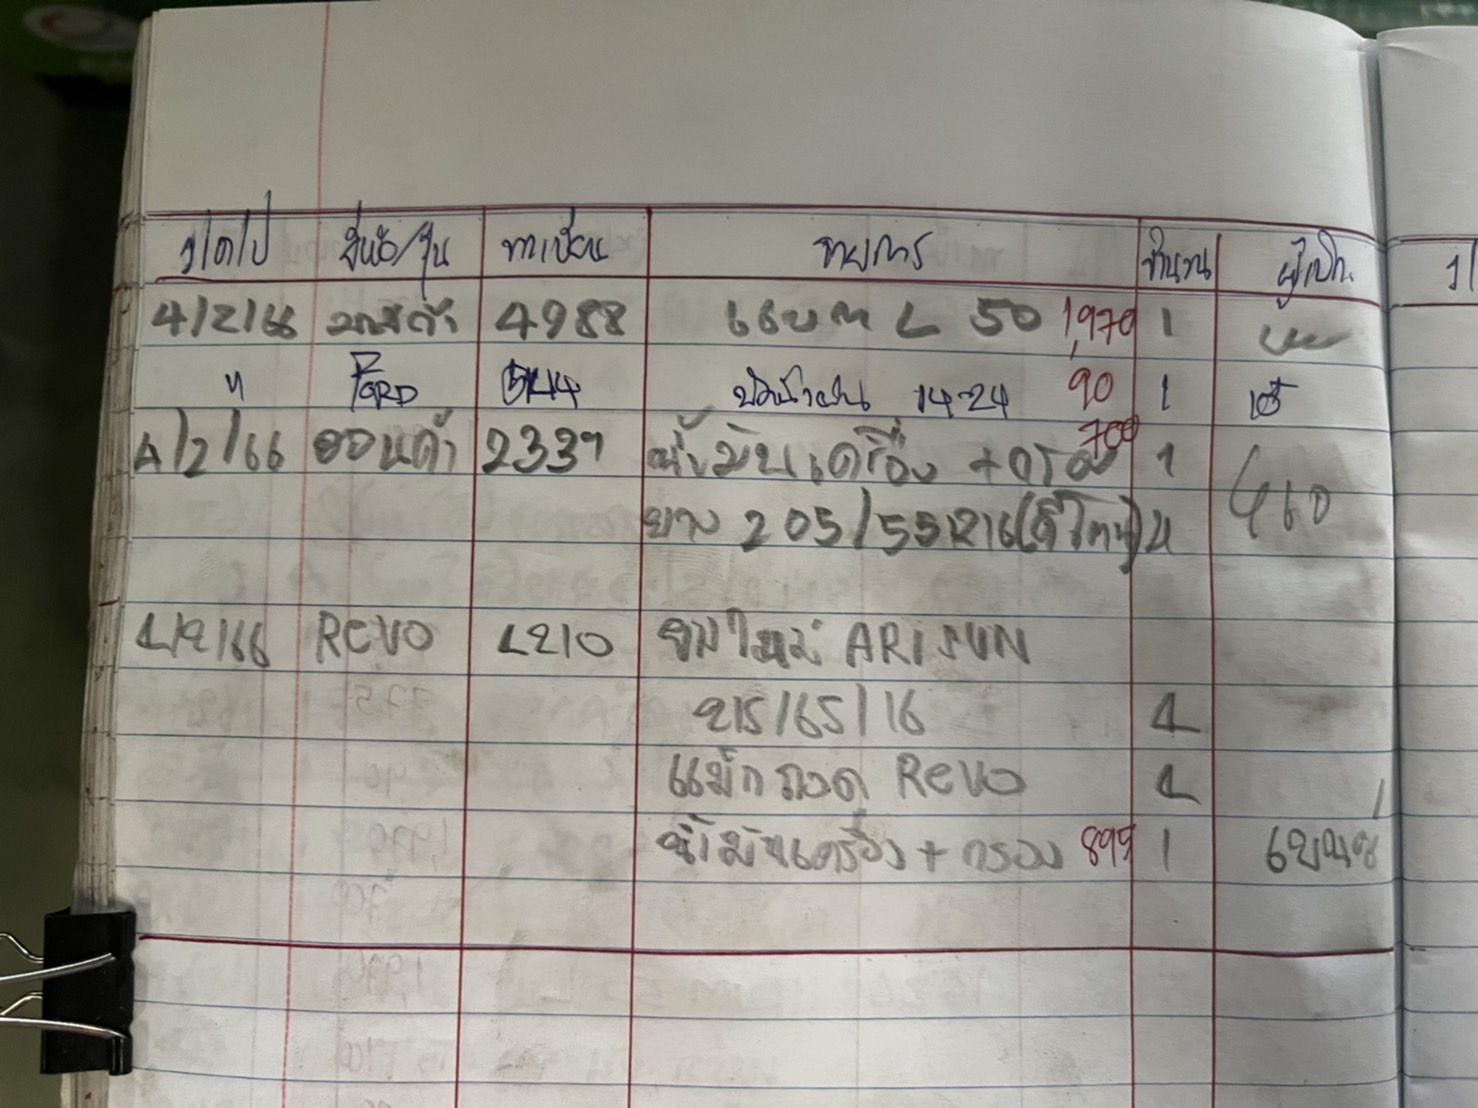 ว/ด/ป ยี่ห้อ/รุ่น ทะเบียน รายการ จำนวน ผู้เบิก ว/
4/2/66 4988 แบต L 50 1,970 1
" FORD 14-24 90 1
4/2/66 ฮอนด้า 2337 น้ำมันเครื่อง + กรอง 700 1
ยาง 205/55R16 4
4/2/66 REVO 4210 ยางใหม่ ARISUN
215/65/16 4
แม็ก ถอด REVO 4
น้ำมันเครื่อง + กรอง 899 1